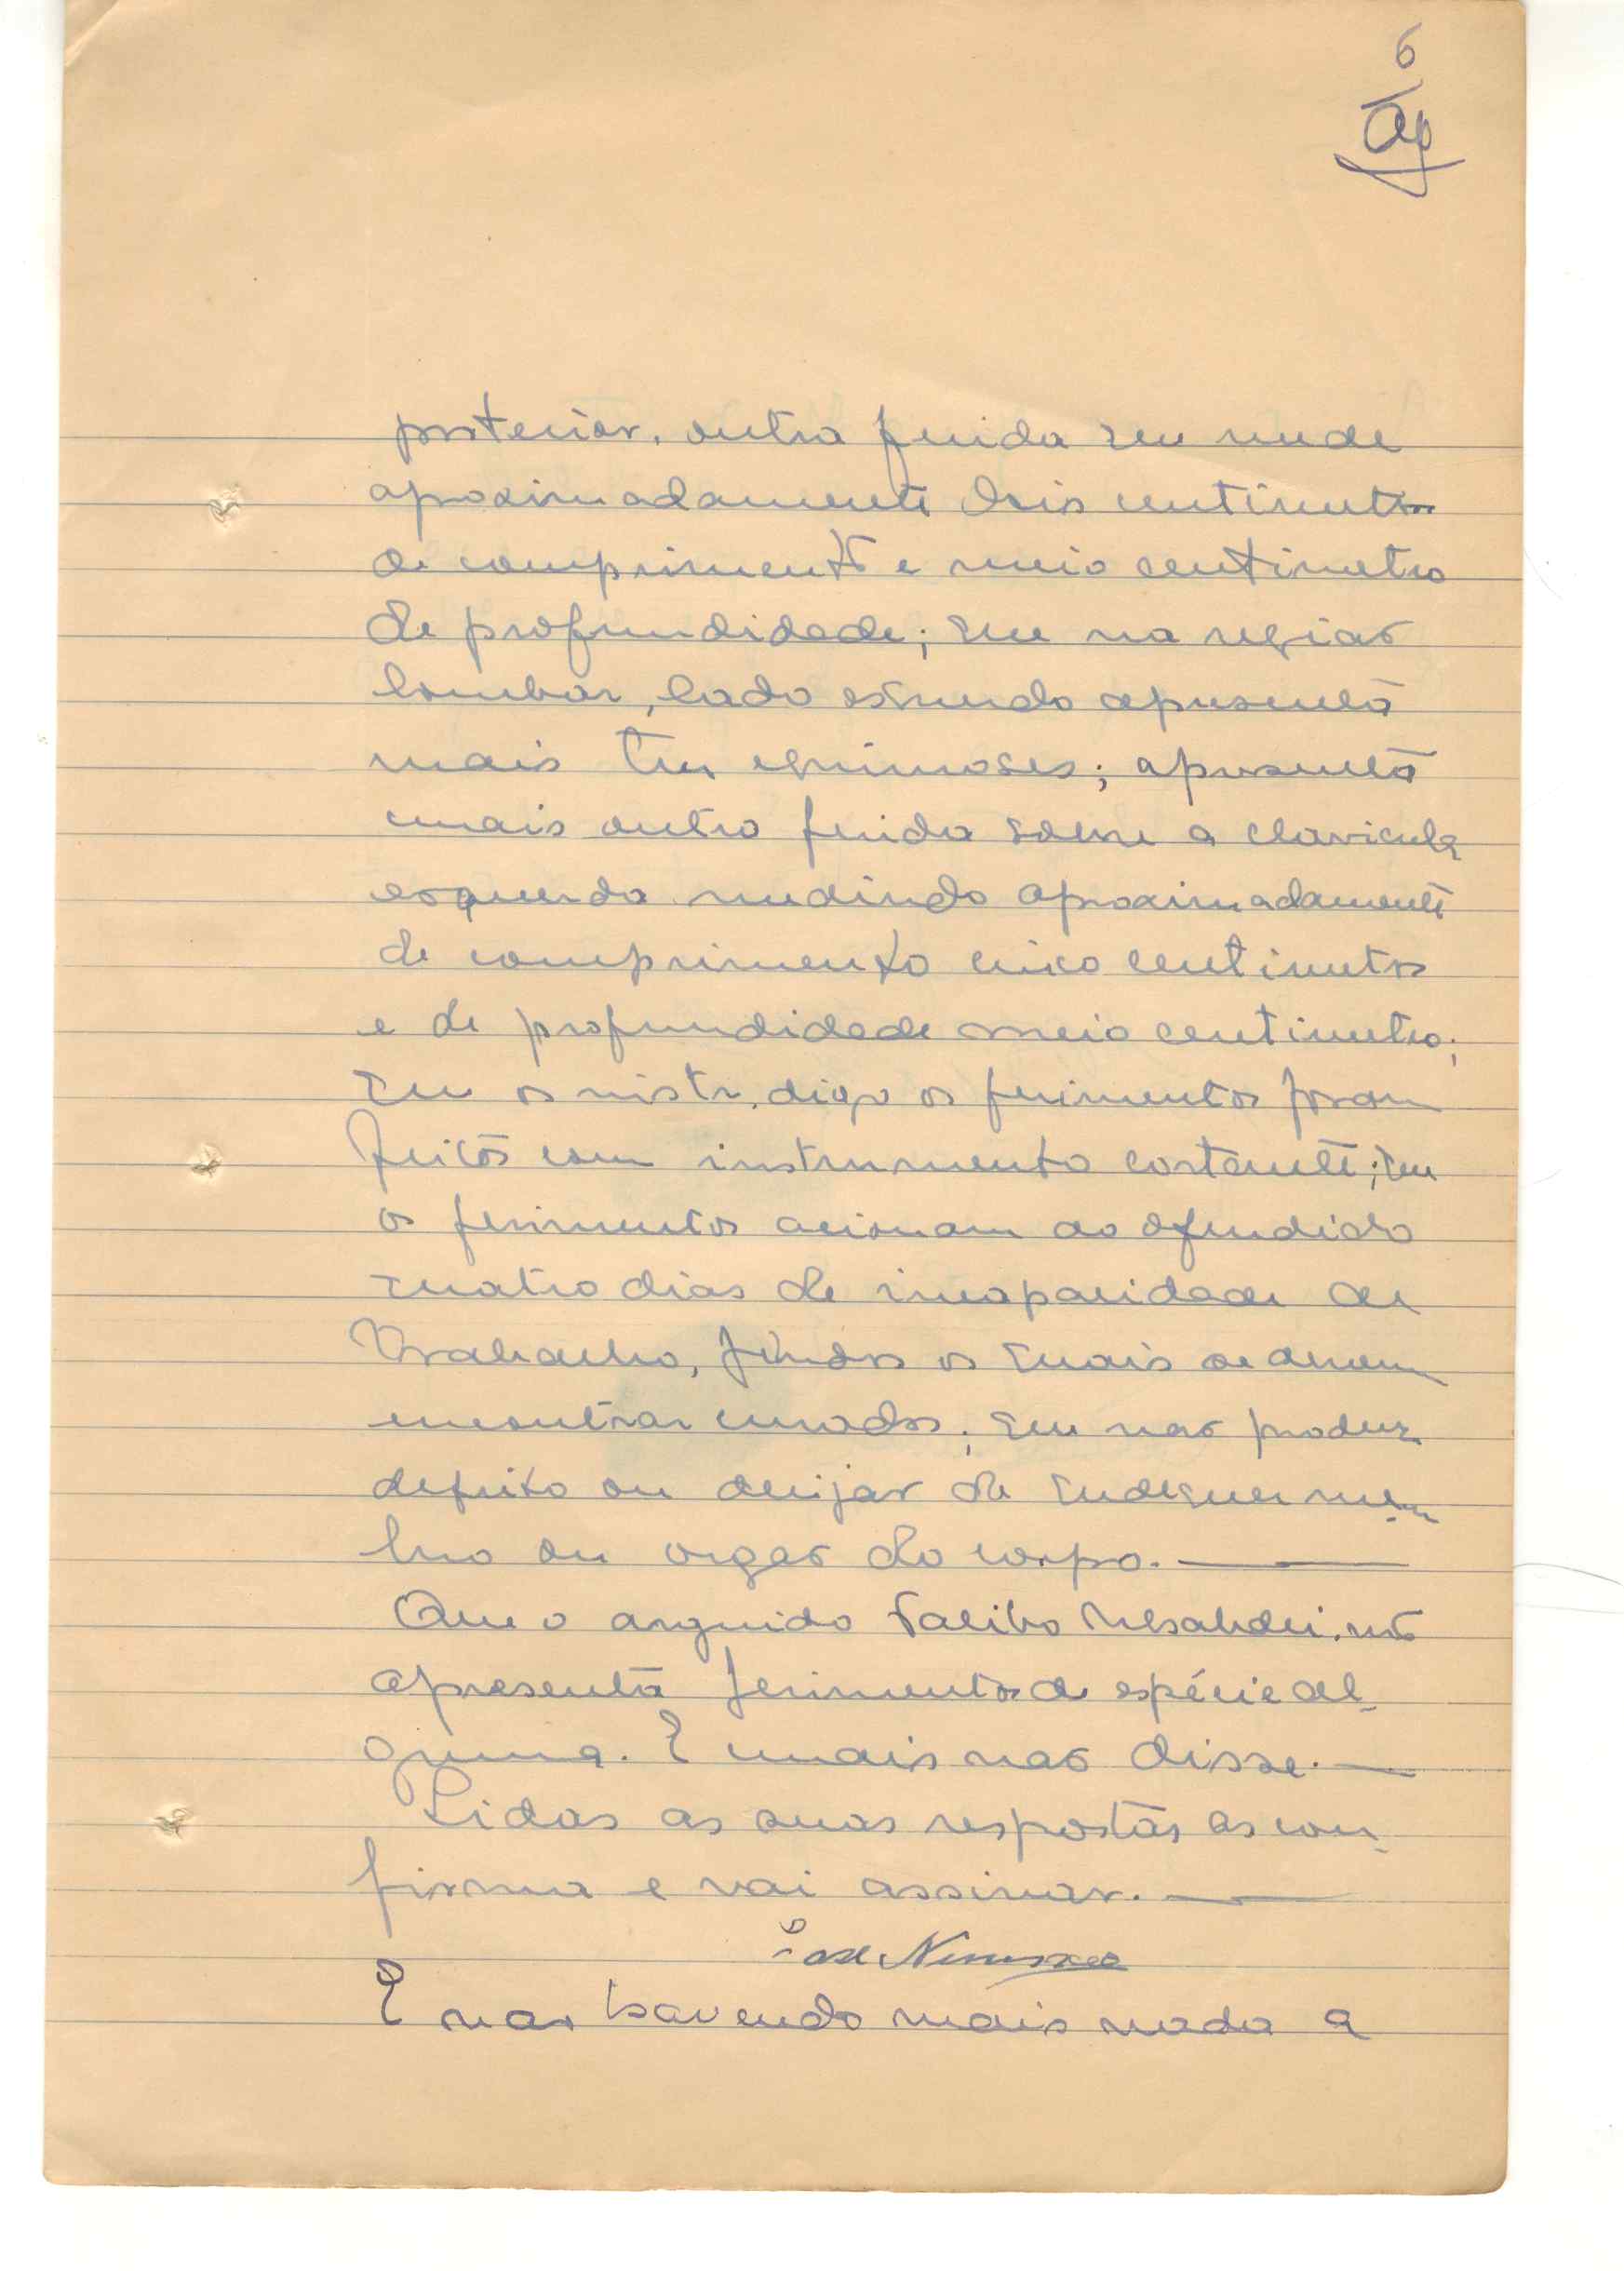 6
posterior, outra ferida que mede
aproximadamente dois centimetros
de comprimento e meio centimetro
de profundidade; que na região
lombar, lado esquerdo apresenta
mais tres equimoses; apresenta
mais outra ferida sobre a clavicula
esquerda medindo aproximadamente
de comprimento cinco centimetros
e de profundidade meio centimetro;
que os digo os ferimentos foram
feitos com instrumento cortante; que
os ferimentos ao ofendido
quatro dias de incapacidade de
trabalho, findos os quais se devem
encontrar curados; que não produz
defeito ou aleijão de qualquer mem-
bro ou orgão do corpo.
Que o arguido não
apresenta ferimentos de espécie al-
guma. E mais não disse.
Lidas as suas respostas as con-
firma e vai assinar.
José
E não havendo mais nada a